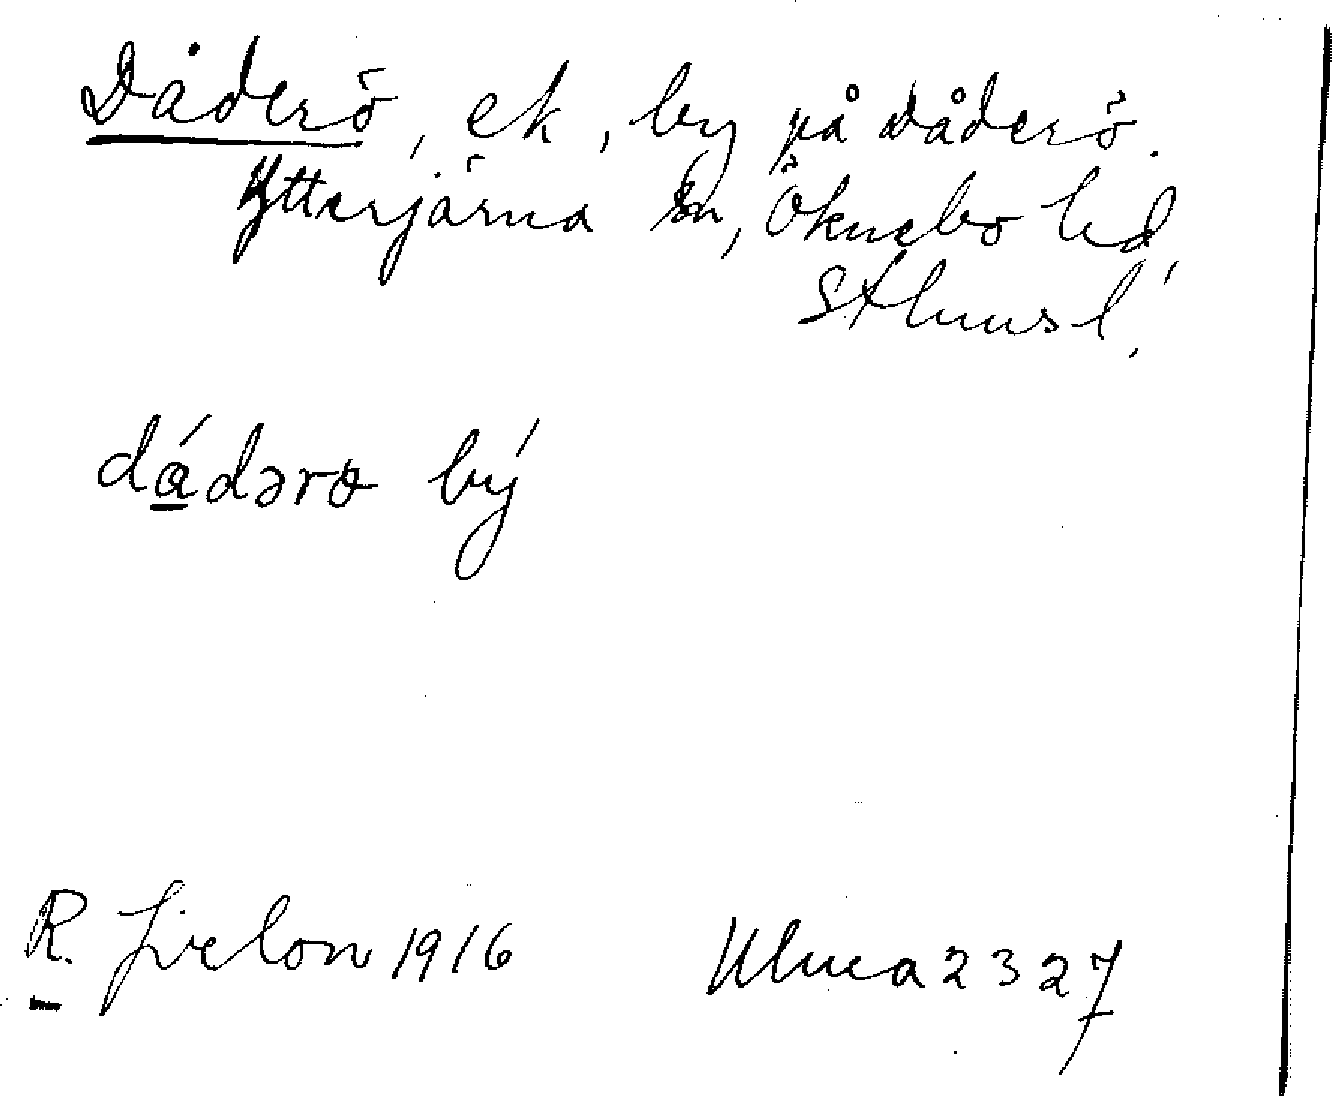 Dåderö, ek, by på Dåderö.
Ytterjärna sn, Öknebo hd,
Sthmsl.
dá̱dərɷ bý
R. 1916 Ulma 2327